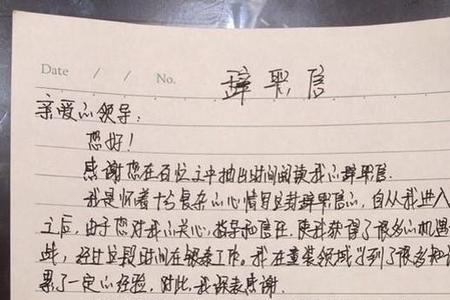 Date / / No. 辞职信
亲爱的领导:
您好!
感谢您在百忙之中抽出时间阅读我的辞职信.
我是怀着十分复杂的心情写这封辞职信的,自从我进入
之后,由于您对我的关心、指导和信任,使我获得了很多的机遇
此,经过这段时间在银泰工作。我在童装领域学到了很多知识
累了一定的经验,对此,我深表感谢.